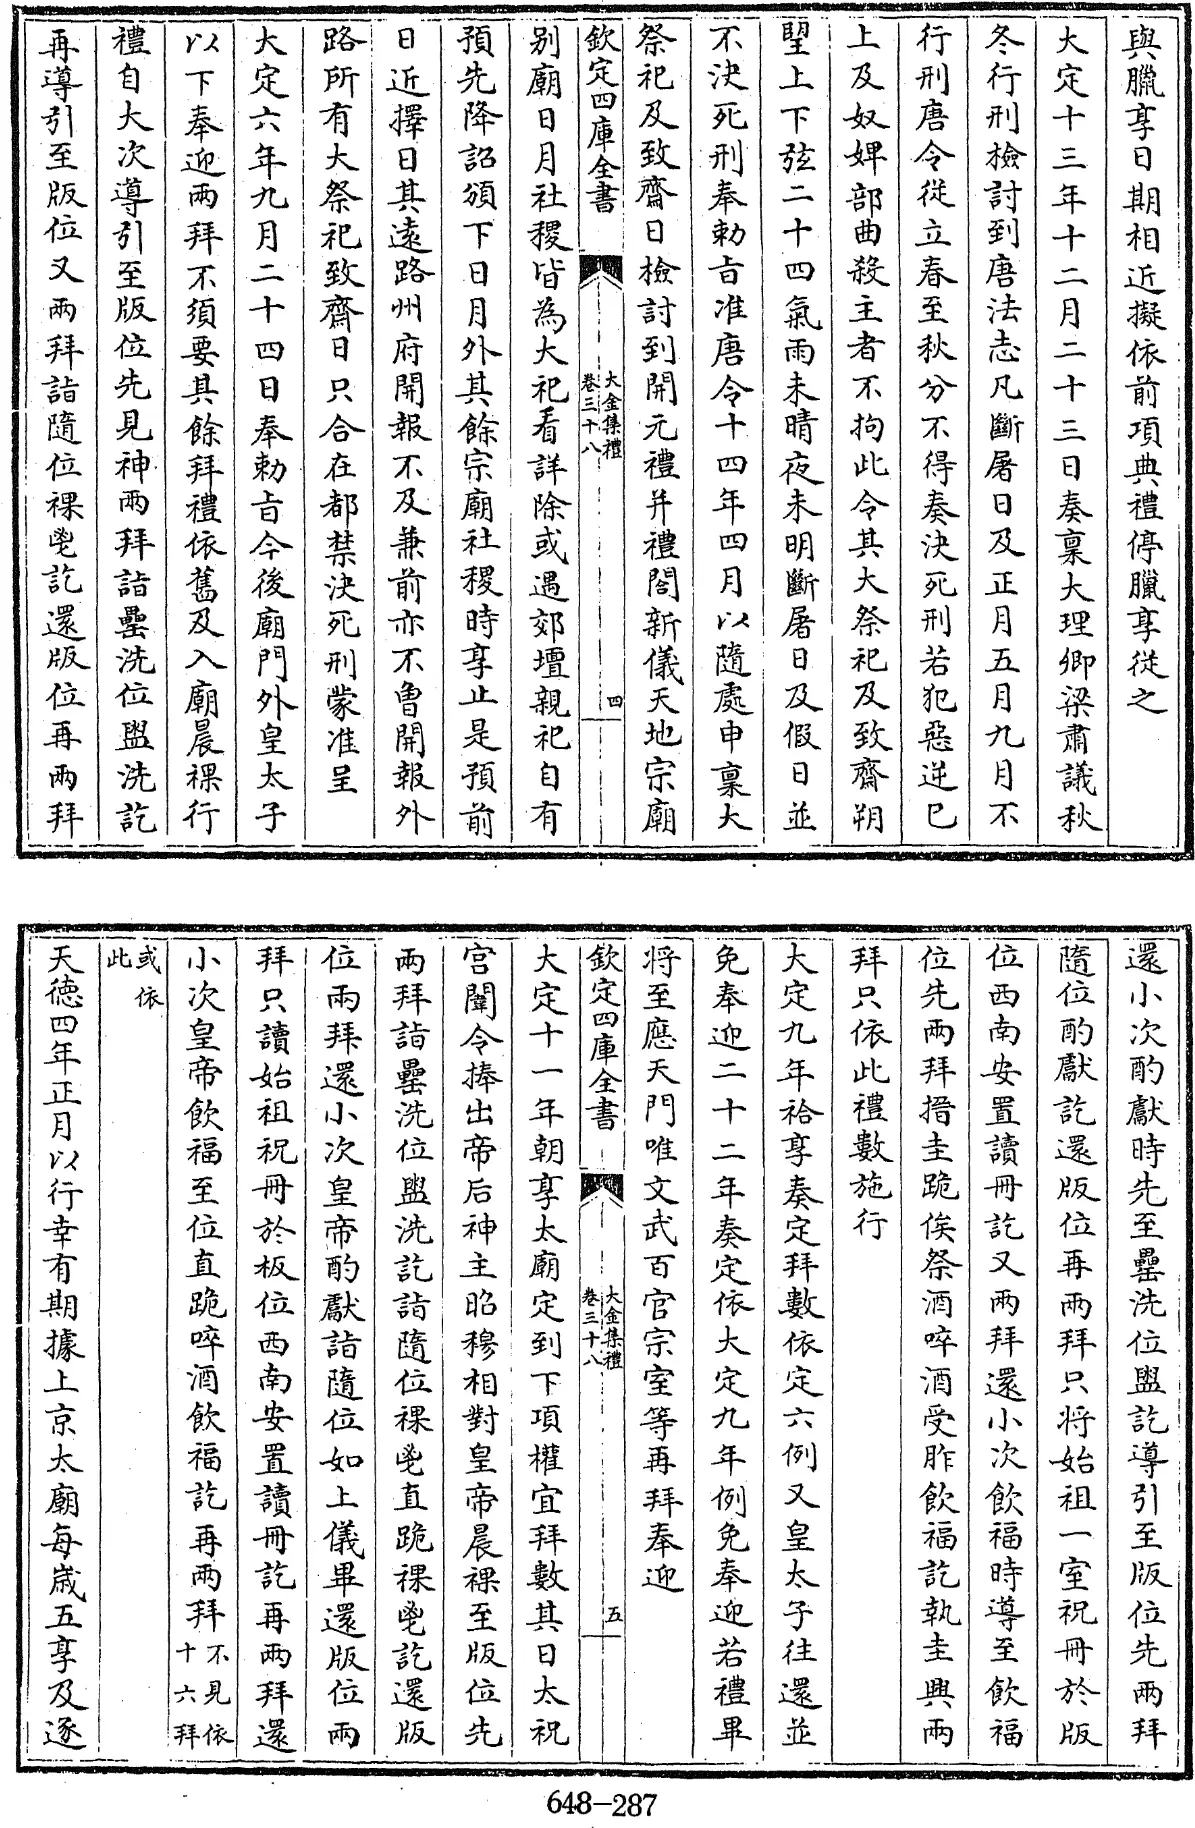 與臘享日期相近擬依前項典禮停臘享從之
大定十三年十二月二十三日奏稟大理卿梁肅議秋
冬行刑檢討到唐法志凡斷屠日及正月五月九月不
行刑唐令從立春至秋分不得奏決死刑若犯惡逆已
上及奴婢部曲殺主者不拘此令其大祭祀及致齋朔
望上下弦二十四氣雨未晴夜未明斷屠日及假日並
不決死刑奉勅㫖准唐令十四年四月以隨處申稟大
祭祀及致齋日檢討到開元禮并禮閣新儀天地宗廟
欽定四庫全書
大金集禮
卷三十八
四
别廟日月社稷皆為大祀看詳除或遇郊壇親祀自有
預先降詔頒下日月外其餘宗廟社稷時享止是預前
日近擇日其遠路州府開報不及兼前亦不曾開報外
路所有大祭祀致齋日只合在都禁決死刑蒙准呈
大定六年九月二十四日奉勅㫖今後廟門外皇太子
以下奉迎兩拜不須要其餘拜禮依舊及入廟晨祼行
禮自大次導引至版位先見神兩拜詣罍洗位盥洗訖
再導引至版位又兩拜詣隨位祼鬯訖還版位再兩拜
還小次酌獻時先至罍洗位盥訖導引至版位先兩拜
隨位酌獻訖還版位再兩拜只將始祖一室祝冊於版
位西南安置讀冊訖又兩拜還小次飲福時導至飲福
位先兩拜搢圭跪俟祭酒啐酒受胙飲福訖執圭興兩
拜只依此禮數施行
大定九年祫享奏定拜數依定六例又皇太子往還並
免奉迎二十二年奏定依大定九年例免奉迎若禮畢
將至應天門唯文武百官宗室等再拜奉迎
欽定四庫全書
大金集禮
卷三十八
五
大定十一年朝享太廟定到下項權宜拜數其日太祝
宮闈令捧出帝后神主昭穆相對皇帝晨祼至版位先
兩拜詣罍洗位盥洗訖詣隨位祼鬯直跪祼鬯訖還版
位兩拜還小次皇帝酌獻詣隨位如上儀畢還版位兩
拜只讀始祖祝冊於板位西南安置讀冊訖再兩拜還
小次皇帝飲福至位直跪啐酒飲福訖再兩拜不見依
十六拜
或依
此
天徳四年正月以行幸有期據上京太廟每嵗五享及逐
648-287